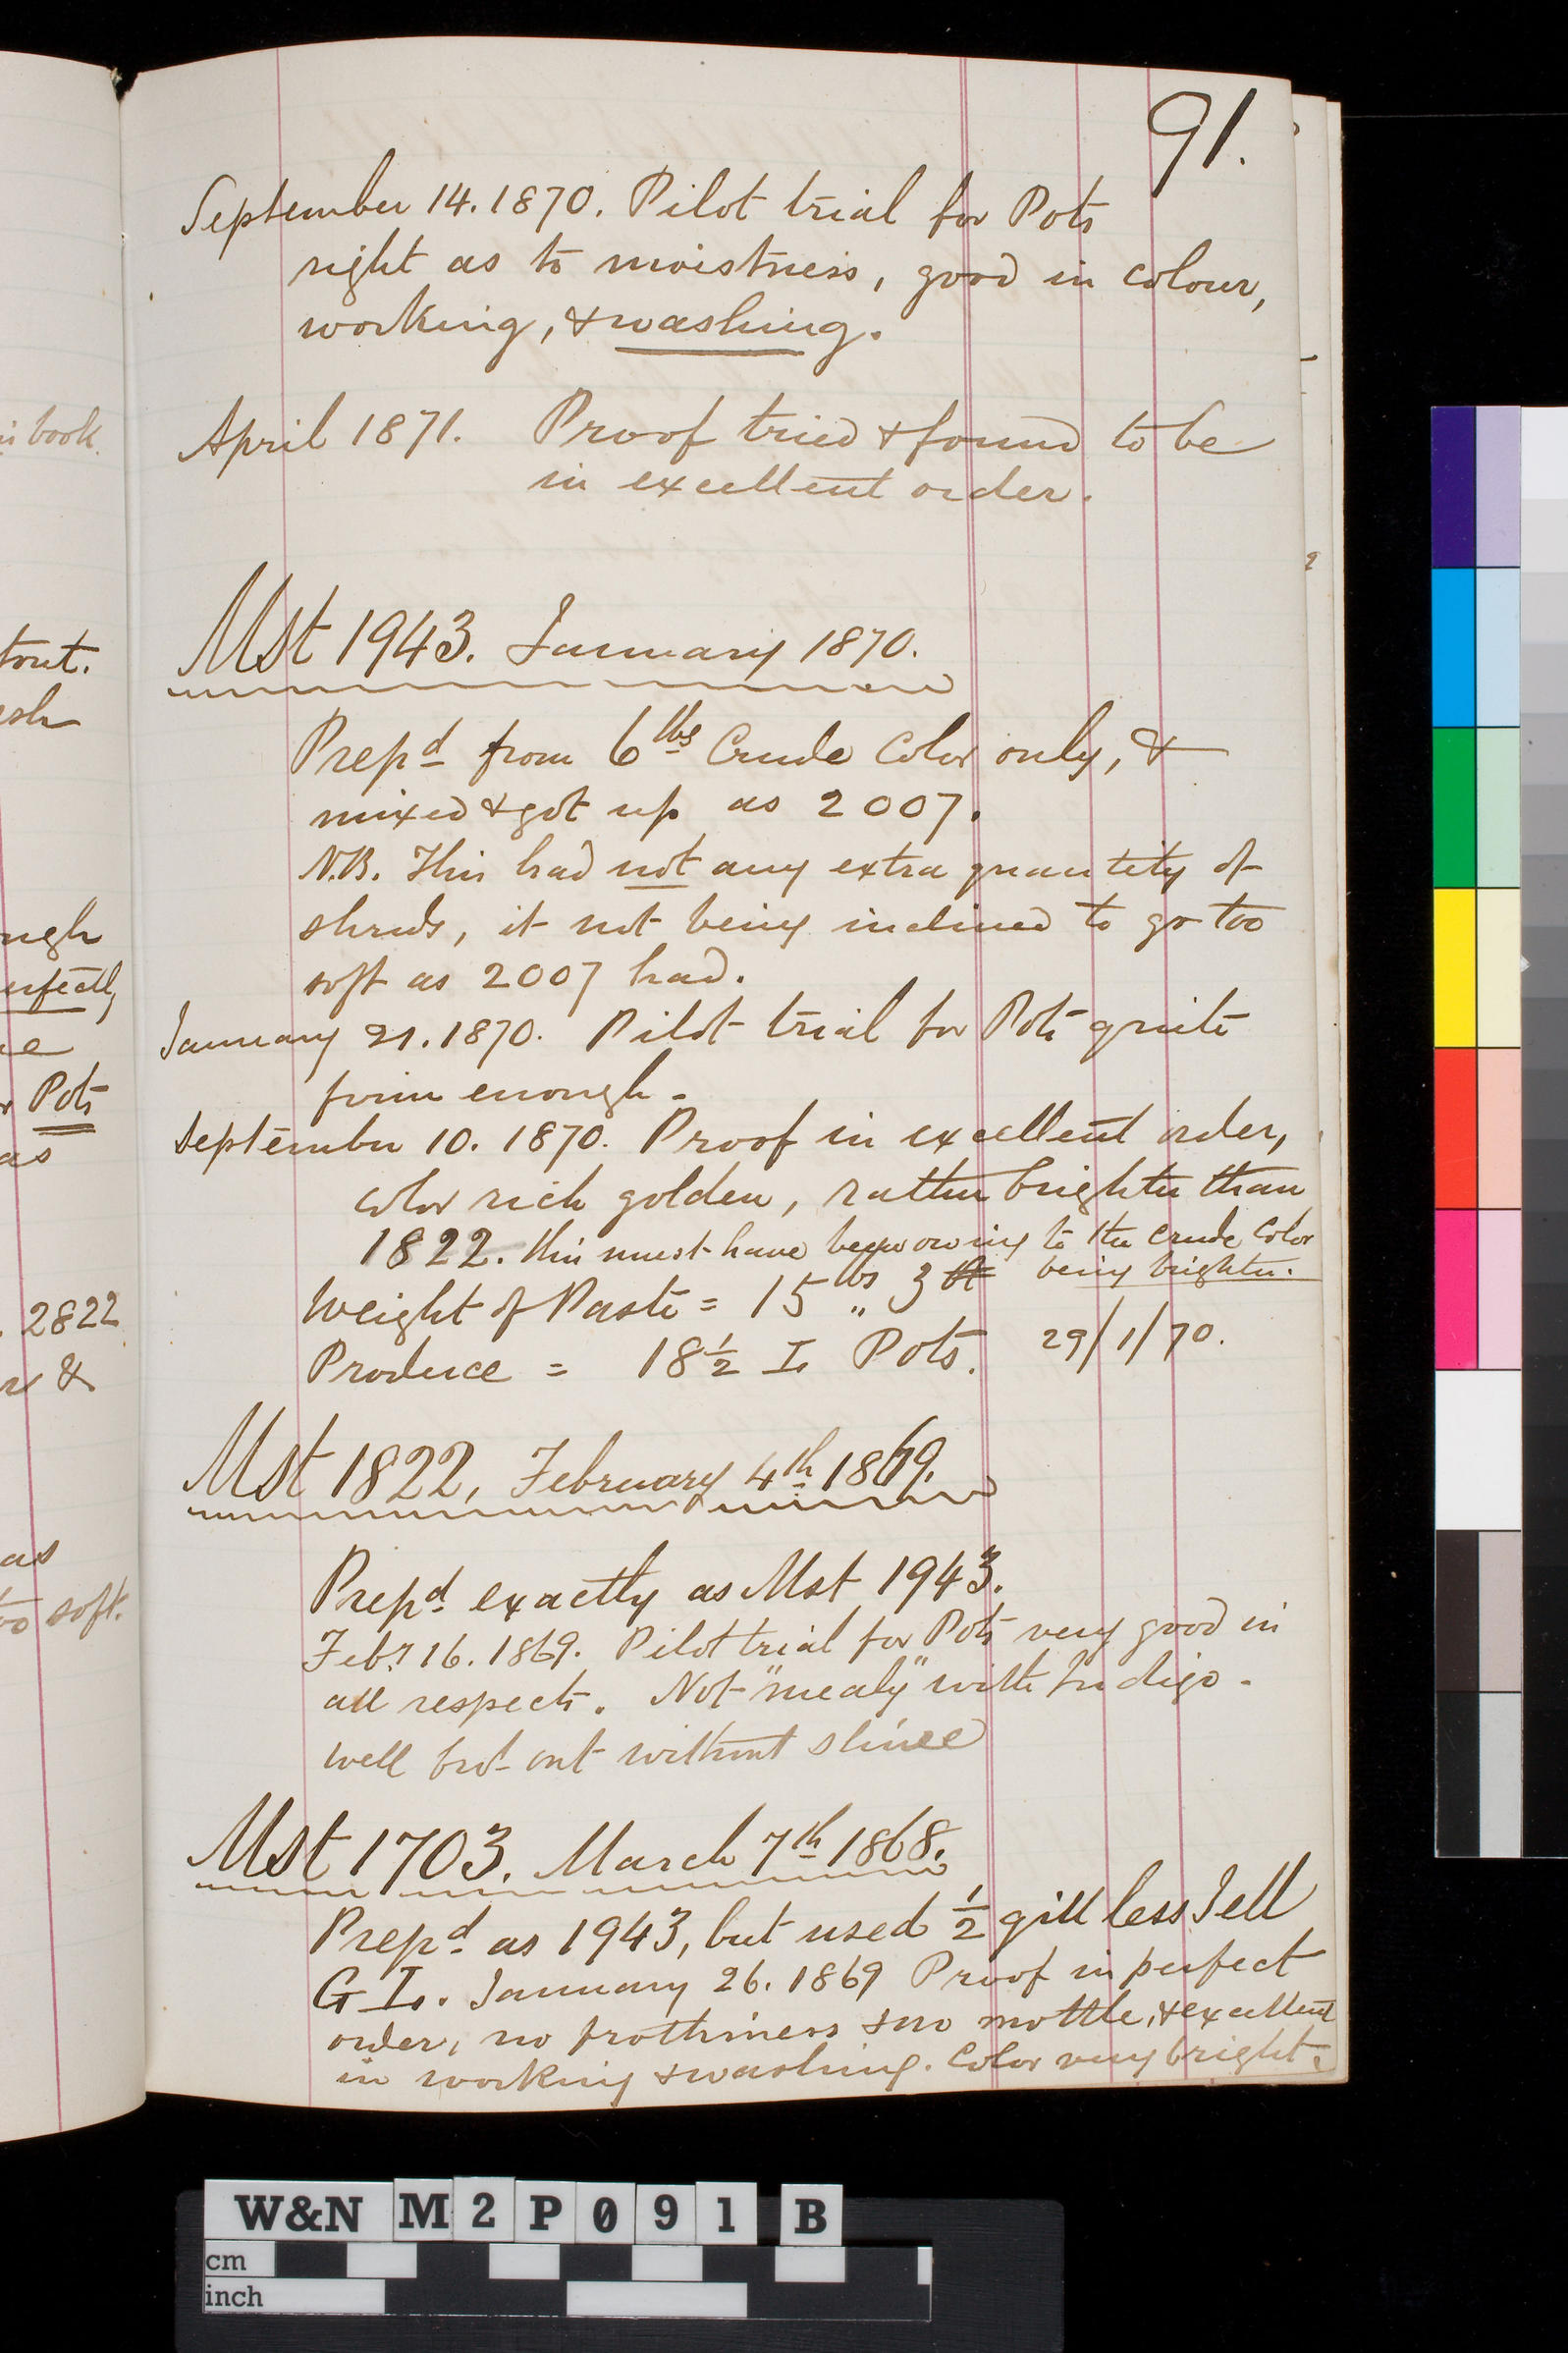 in book.
tout.
esh
ough
erfectly
ue
r Pots
as
. 2822
&
as
too soft.
91.
September 14. 1870. Pilot trial for Pots
right as to moistness, good in colour,
working, & washing.
April 1871. Proof tried & found to be
in excellent order.
Mst 1943. January 1870.
Prepd from 6 lbs Crude Color only, &
mixed & got up as 2007.
N.B. This had not any extra quantity of
shreds, it not being inclined to go too
soft as 2007 had.
January 21. 1870. Pilot trial for Pots quite
firm enough.
September 10. 1870. Proof in excellent order,
color rich golden, rather brighter than
1822. this must have been owing to the Crude Color
being brighter.
Weight of Paste = 15 lbs „ 3
Produce = 18 1/2 Pots. 29/1/70.
Mst 1822, February 4th 1869.
Prepd exactly as Mst 1943.
Feby 16. 1869. Pilot trial for Pots very good in
all respects. Not "mealy" with Indigo.
well brot out without shine
Mst 1703. March 7th 1868.
Prepd as 1943, but used 1/2 gill less Jell
G I. January 26. 1869 Proof in perfect
order, no frothiness & no mottle, & excellent
in working & washing. Color very bright.
W&N M2P091 B
cm
inch